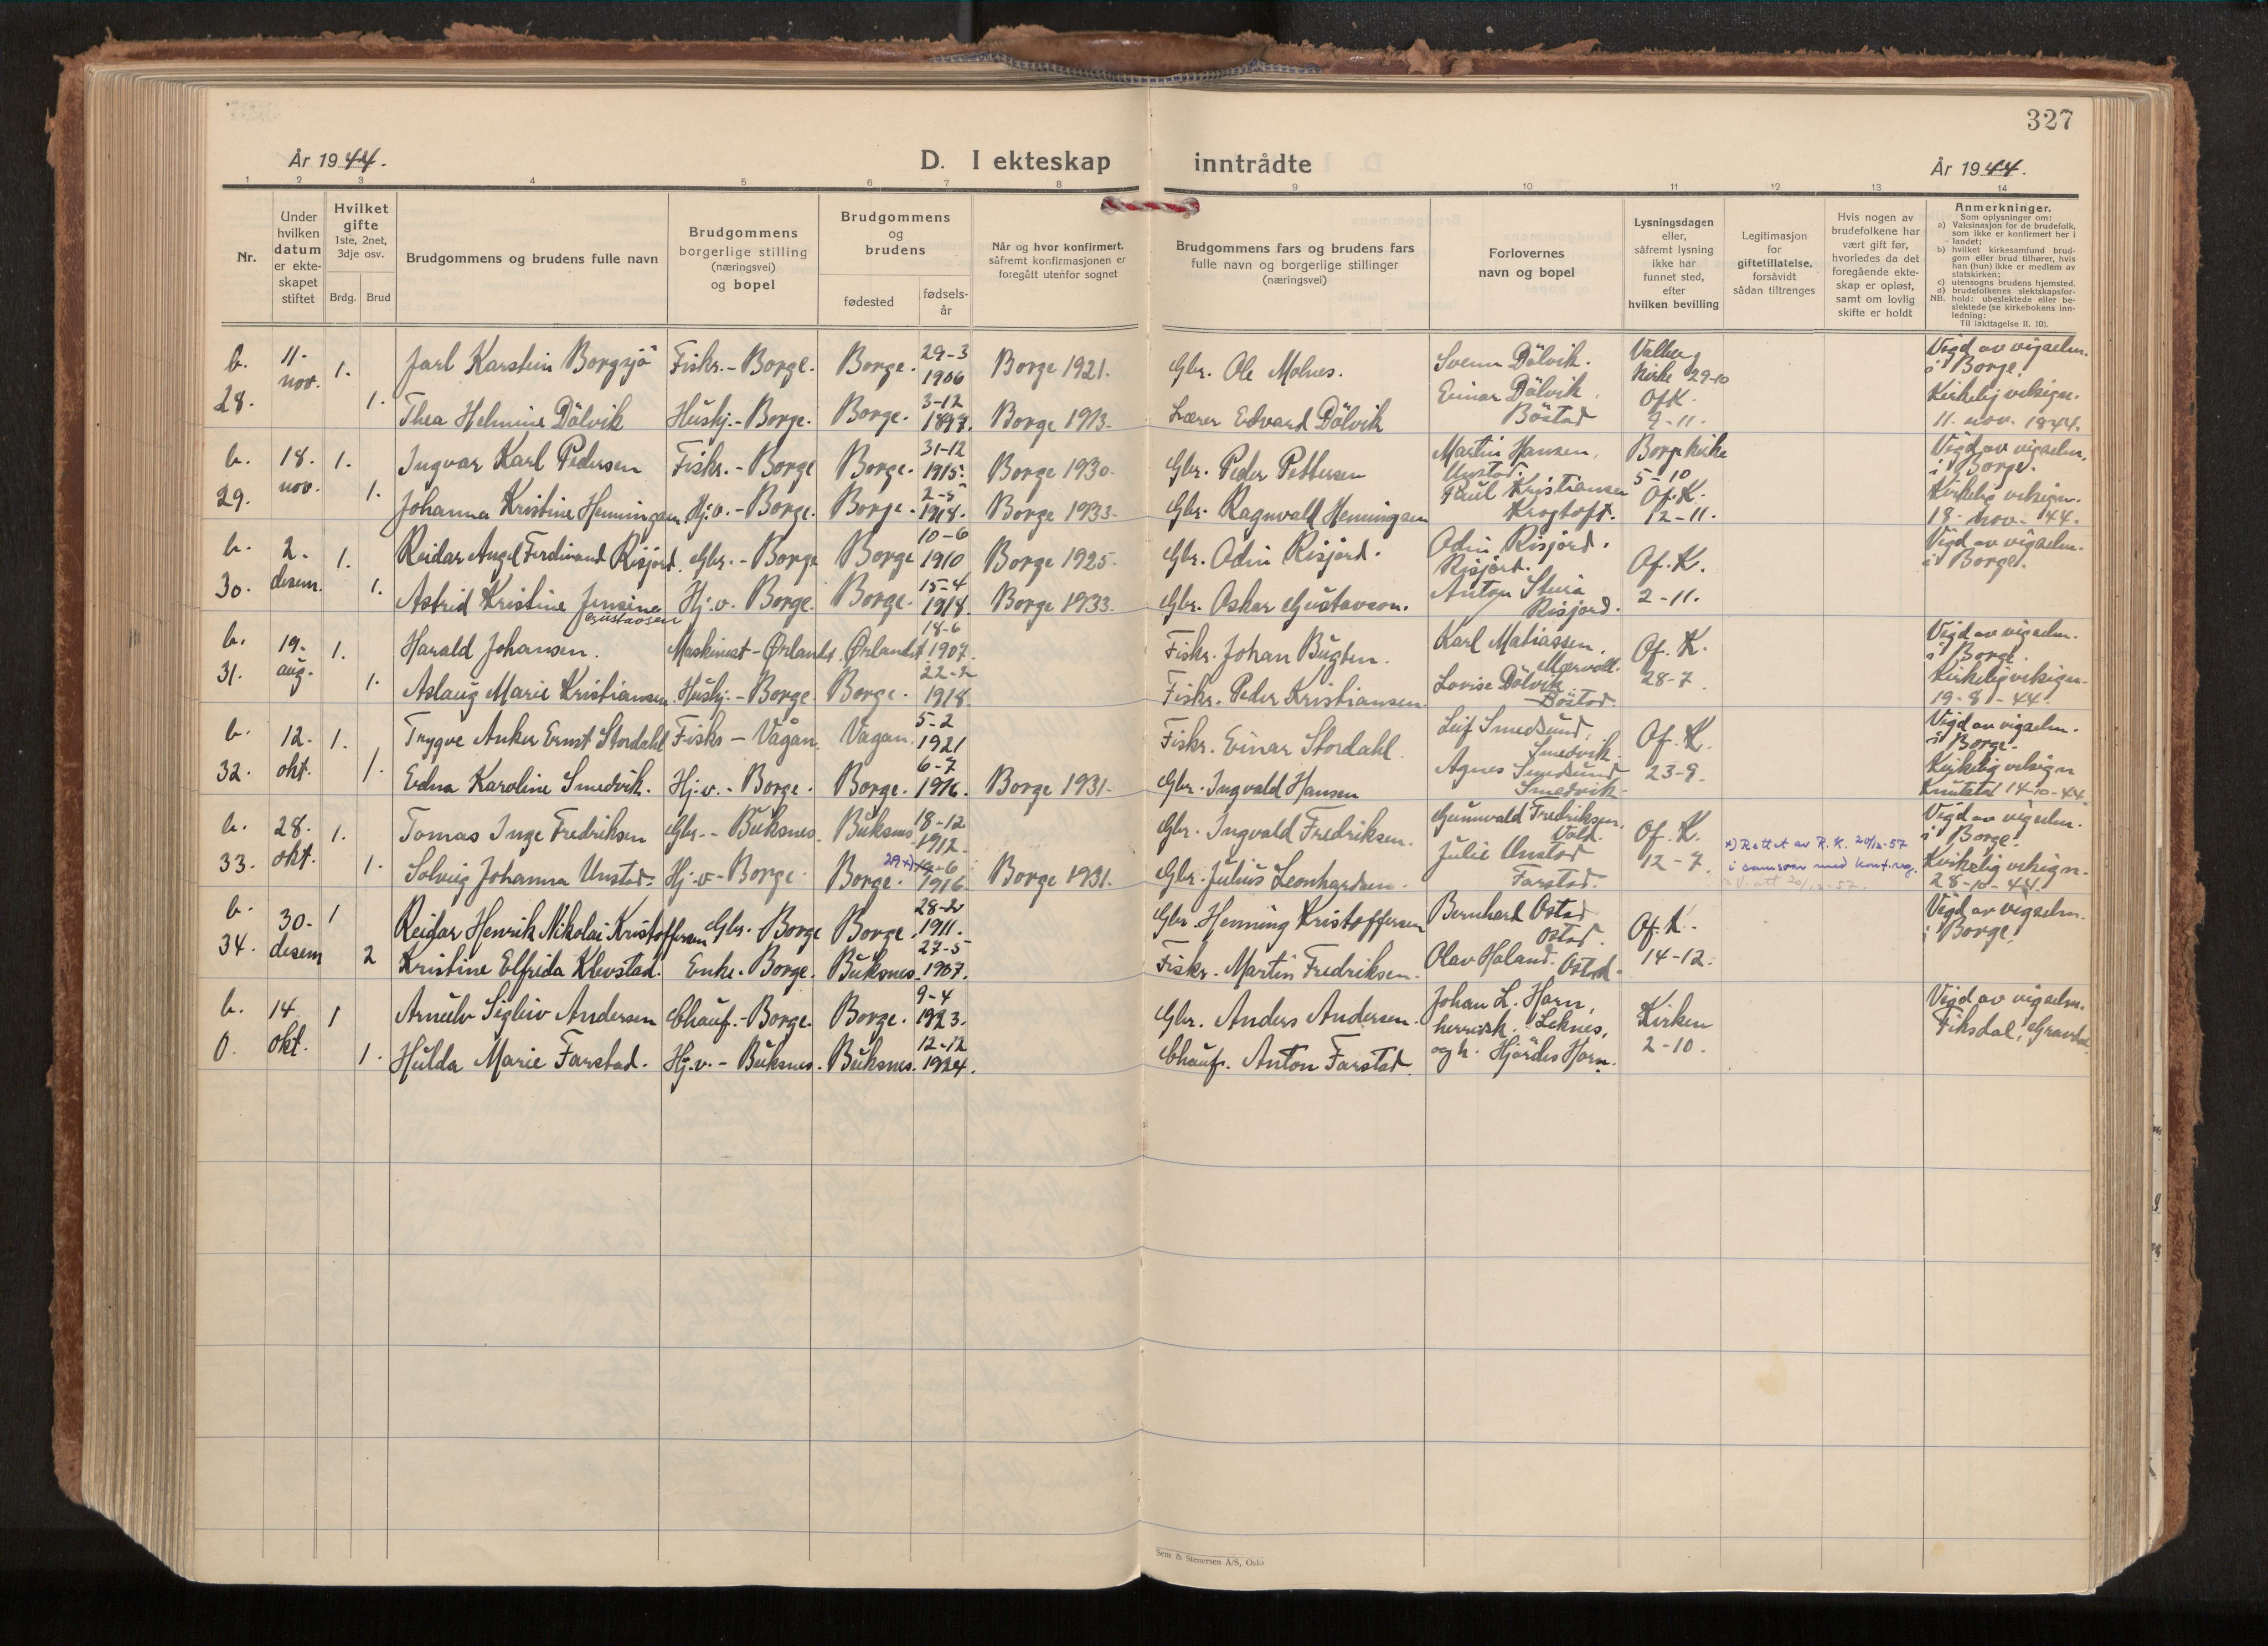 327
År 1944.
D. I ekteskap inntrådte
År 1944.
1 2 3 4 5 6 7 8 9 10 11 12 13 14
Nr.
Under hvilken datum er ekteskapet stiftet
Hvilket gifte
1ste, 2net, 3dje osv.
Brdg. Brud
Brudgommens og brudens fulle navn
Brudgommens borgerlige stilling (næringsvei) og bopel
Brudgommens og brudens
fødested
fødselsår
Når og hvor konfirmert, såfremt konfirmasjonen er foregått utenfor sognet
Brudgommens fars og brudens fars fulle navn og borgerlige stillinger (næringsvei)
Forlovernes navn og bopel
Lysningsdagen eller, såfremt lysning ikke har funnet sted, efter hvilken bevilling
Legitimasjon for giftetillatelse, forsåvidt sådan tiltrenges
Hvis nogen av brudefolkene har vært gift før, hvorledes da det foregående ekteskap er opløst, samt om lovlig skifte er holdt
Anmerkninger.
Som oplysninger om:
a) Vaksinasjon for de brudefolk, som ikke er konfirmert her i landet;
b) hvilket kirkesamfund brudgom eller brud tilhører, hvis han (hun) ikke er medlem av statskirken;
c) utensogns brudens hjemsted.
d) brudefolkenes slektskapsforhold: ubeslektede eller beslektede (se kirkebokens innledning:
NB.
Til iakttagelse II. 10).
b. 28. 11. nov. 1. Jarl Karstein Borgsjö Fiskr. - Borge. Borge. 29-3 1906 Borge 1921. Gbr. Ole Molnes. Svenn Dölvik. Valberg kirke 29-10 Vigd av vigselm. i Borge.
1. Thea Helmine Dölvik Hushj. - Borge. Borge. 3-12 1897. Borge 1913. Lærer Edvard Dölvik Einar Dölvik. Böstad Of.K. 9-11. Kirkelig velsign. 11. nov. 1944.
b. 29. 18. nov. 1. Ingvar Karl Pedersen Fiskr. - Borge Borge. 31-12 1915. Borge 1930. Gbr. Peder Pettersen Martin Hansen, Unstad. Borge kirke 5-10 Vigd av vigselm. i Borge.
1. Johanna Kristine Henningsen Hj.v. - Borge. Borge. 2-5 1918. Borge 1933. Gbr. Ragnvald Henningsen Paul Kristiansen Krogtoft. Of.K. 12-11. Kirkelig velsign. 18. nov. 44.
b. 30. 2. desem. 1. Reidar Angel Ferdinand Risjord. Gbr. - Borge Borge 10-6 1910 Borge 1925. Gbr. Odin Risjord. Odin Risjord. Risjord. Of.K. 2-11. Vigd av vigselm. i Borge.
1. Astrid Kristine Jensine Gustavsen Hj.v. Borge. Borge. 15-4 1918. Borge 1933. Gbr. Oskar Gustavson. Anton Risjord.
b. 31. 19. aug. 1. Harald Johansen. Maskinist - Ørlandet Ørlandet 18-6 1907. Fiskr. Johan Bugten. Karl Matiassen, Mærvoll. Of.K. 28-7. Vigd av vigselm. i Borge.
1. Aslaug Marie Kristiansen. Hushj. - Borge. Borge. 22-2 1918. Fiskr. Peder Kristiansen. Lovise Dölvik Böstad. Kirkelig velsign. 19-8-44.
b. 32. 12. okt. 1. Trygve Anker Ernst Stordahl Fiskr - Vågan. Vågan. 5-2 1921 Fiskr. Einar Stordahl. Leif Smedsund. Smedvik. Of.K. 23-9. Vigd av vigselm. i Borge.
1. Edna Karoline Smedvik. Hj.v. - Borge. Borge. 6-7 1916. Borge 1931. Gbr. Ingvald Hansen Agnes Smedsund Smedvik. Kirkelig velsign Knutstad 14-10-44.
b. 33. 28. okt. 1. Tomas Inge Fredriksen Gbr. - Buksnes. Buksnes 18-12 1912. Gbr. Ingvald Fredriksen. Gunnvald Fredriksen, Vold. Of.K. 12-7. Vigd av vigselm. i Borge.
1. Solveig Johanna Unstad. Hj.v - Borge. Borge. 29 x) 1916 Borge 1931. Gbr. Julius Leonhardsen. Julie Unstad Farstad. x) Rettet av R.K. 20/12-57 i samsvar med konf.reg. Kirkelig velsign. 28-10-44.
b. 34. 30. desem 1 Reidar Henrik Nikolai Kristoffersen Gbr. Borge Borge. 28-2 1911. Gbr. Henning Kristoffersen Bernhard Ostad Ostad. Of.K. 14-12. Vigd av vigselm. i Borge.
2 Kristine Elfrida Klevstad. Enke. Borge. Buksnes. 27-5 1907. Fiskr. Martin Fredriksen. Olav Haland. Ostad.
b. 0. 14 okt. 1 Arnulv Sigleiv Andersen Chauf. - Borge. Borge. 9-4 1923. Gbr. Anders Andersen. Johan L. Horn, herredsk. Leknes, Kirken 2-10. Vigd av vigselm. Fiksdal, Gravdal.
1. Hulda Marie Farstad. Hj.v. - Buksnes. Buksnes. 12-12 1924. Chauf. Anton Farstad. og h. Hjördis Horn.
Sem & Stenersen A/S, Oslo